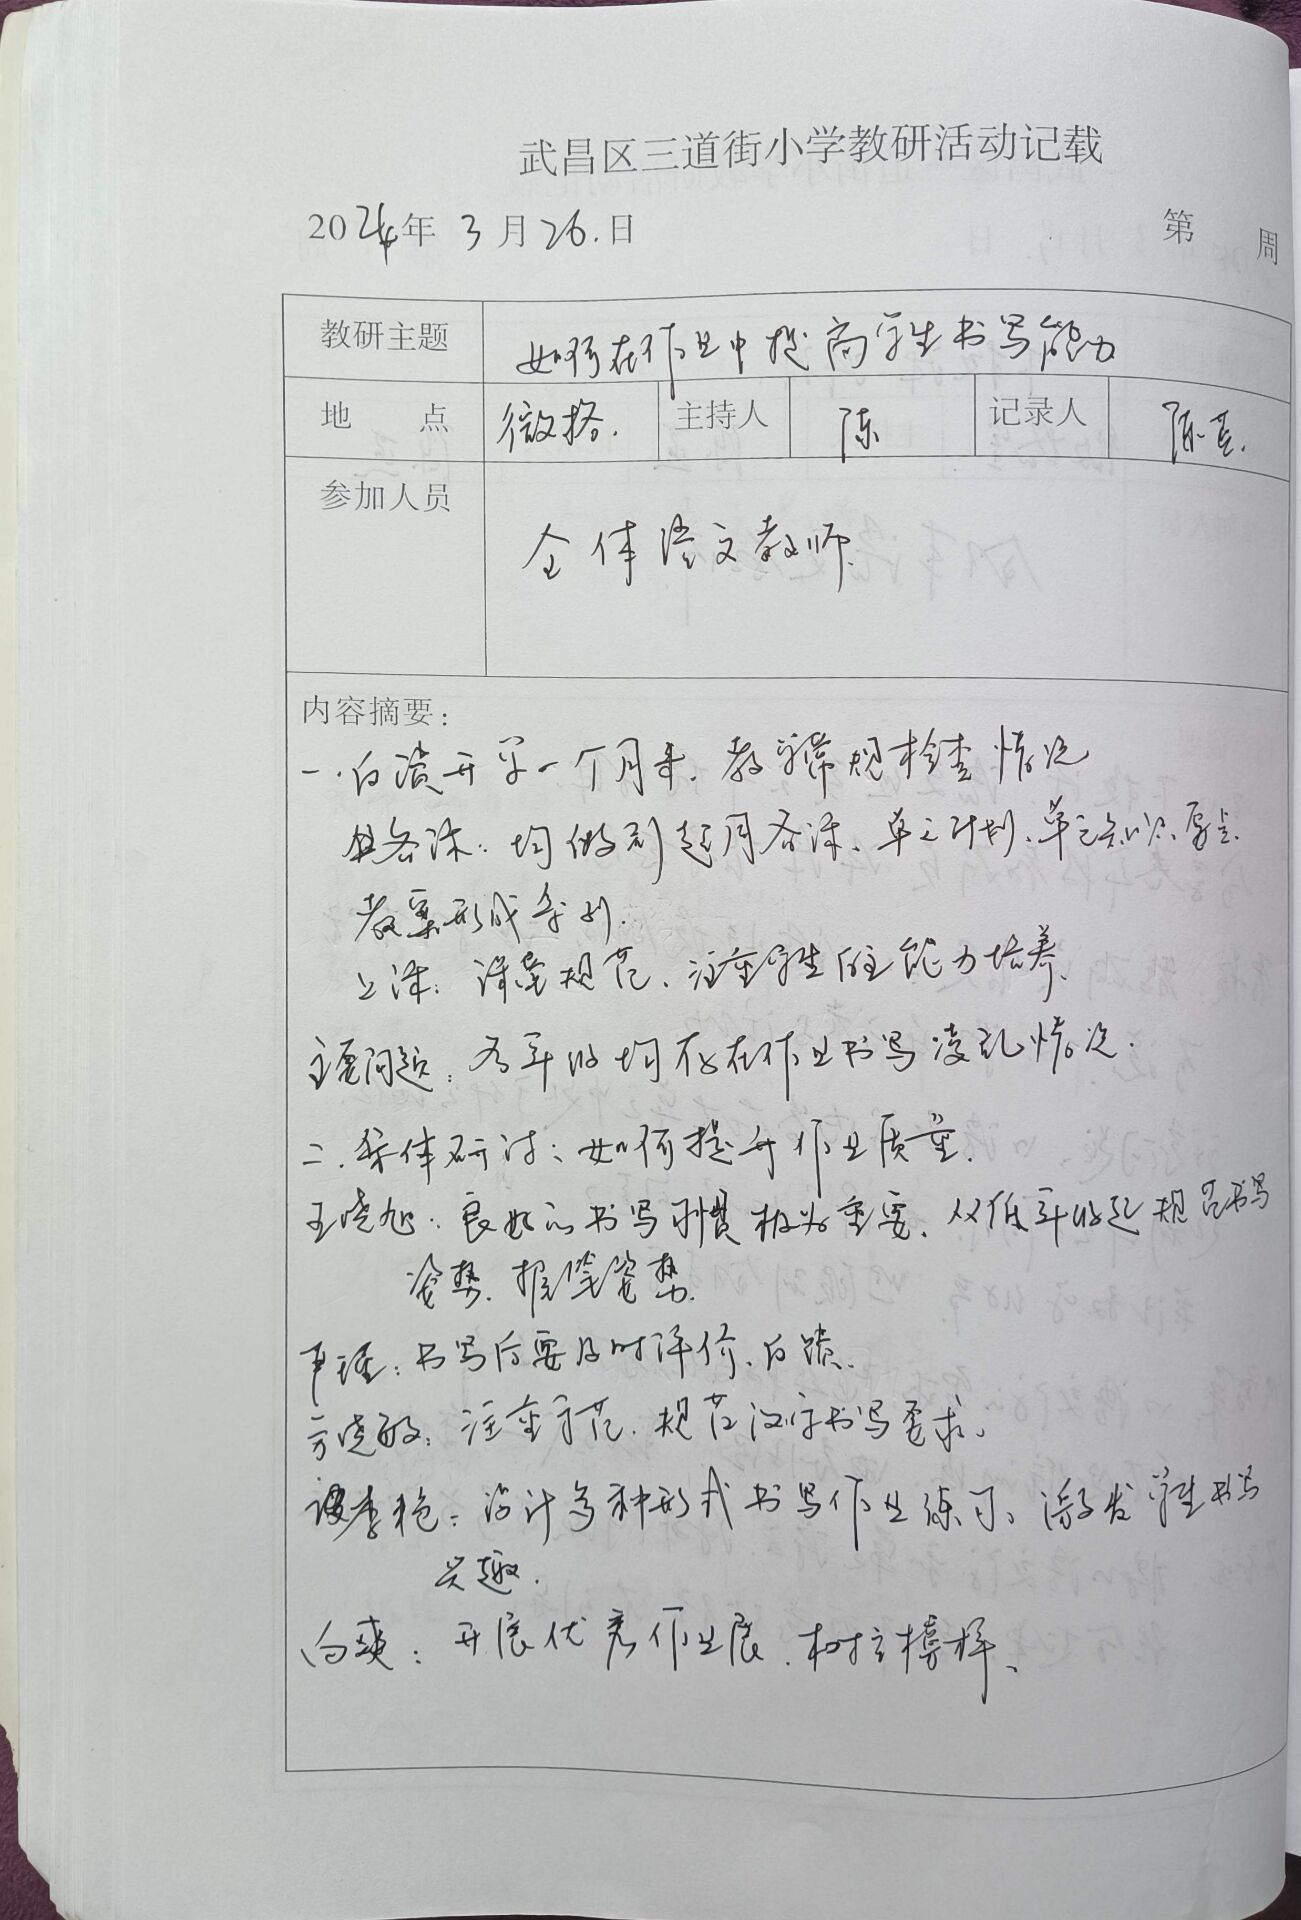 武昌区三道街小学教研活动记载
2024年 3月26.日 第 周
教研主题 如何在作业中提高学生书写能力
地 点 微格. 主持人 陈 记录人 陈
参加人员 全体语文教师.
内容摘要:
一.反馈开学一个月来,教学常规检查情况
备课:均做到起周备课、单元计划、单元知识
教案形成系列.
上课:课堂规范、注重学生能力培养、
主要问题:各年级均存在作业书写凌乱情况.
二.集体研讨:如何提升作业质量.
王晓旭:良好的书写习惯极为重要、从低年级起规范书写
姿势、握笔姿势.
书写后要及时评价、反馈.
方晓敏:注重示范、规范汉字书写要求、
设计多种形式书写作业练习、激发学生书写
兴趣.
向爽:开展优秀作业展、树立榜样、